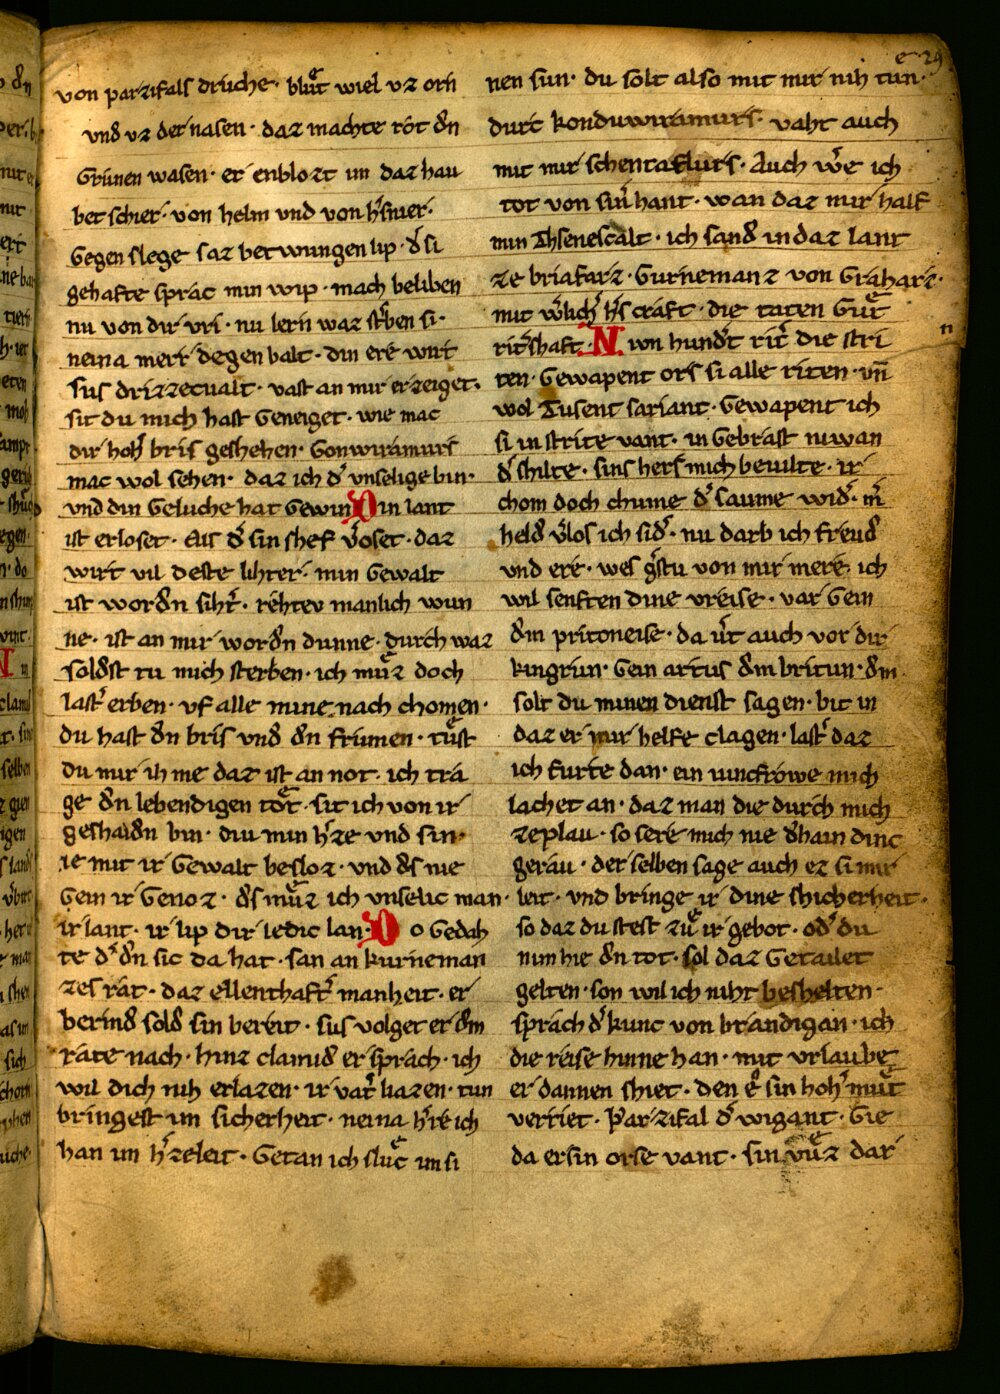 von parzifals druche · blůt wiel vz orn
vnd vz der nasen · daz machte rôt dn
Grunen wasen · er enblozt im daz hau
bet schier · von helm vnd von hſnier ·
Gegen slege saz betwungen lip · d' si
gehafte sprac min wip · mach beliben
nu von dir vri · nu lern waz st'ben si ·
neina mert degen balt · din ere wirt
sus drizzecualt · vast an mir erzeiget ·
sit du mich hast Geneiget · wie mac
dir hoh' bris geshehen · Gonwiramurs
mac wol sehen · daz ich d' vnselige bin ·
vnd din Geluche hat Gewin Din lant
ist erloset · Als d' sin shef v'oset · daz
wirt vil deste lihter · min Gewalt
ist wordn siht' · rehtev manlich wun
ne · ist an mir wordn dunne · durch waz
soldst tu mich sterben · ich můz doch
last' erben · vf alle mine nach chomen ·
du hast dn bris vnd dn frumen · tůst
du mir ih me daz ist an not · ich tra
ge dn lebendigen tôt · sit ich von ir
geshaidn bin · diu min h'ze vnd sin ·
ie mit ir Gewalt besloz · vnd ds nie
Gein ir Genoz · ds můz ich vnselic man ·
ir lant · ir lip dir ledic lan · Do Gedah
te d' dn sic da hat · san an kurneman
zes rat · daz ellenthaft' manheit · er
berind sold sin bereit · sus volget er dm
rate nach · hinz clamid er sprach · ich
wil dich nih erlazen · ir vat' liazen · tun
bringest im sicherheit · neina h're ich
han im h'zeleit · Getan ich sluc im si
nen sun · du solt also mit mir nih tun ·
durc konduwiramurs · vaht auch
mit mir schentaflurs · Auch w'e ich
tot von sin' hant · wan daz mir half
min Thsenescalt · ich sand in daz lant
ze briafarz · Gurnemanz von Graharz ·
mit w'lich' h's craft · die taten Gůt
rit'shaft · Niwn hund't rit' die stri
ten · Gewapent ors si alle riten · vn̄
wol Tusent sariant · Gewapent ich
si in strite vant · in Gebrast niwan
d' shilte · sins hers mich beuilte · ir
chom doch chume d' saume wid' · m'
held v'los ich sid' · nu darb ich freud
vnd ere · wes g'stu von mir mere · ich
wil senften dine vreise · var Gein
dm pritoneise · da u't auch vor dir
kingrun · Gein artus dm britun · dm
solt du minen dienst sagen · bit in
daz er mir helfe clagen · last' daz
ich furte dan · ein iuncfrowe mich
lachet an · daz man die durch mich
zeplau · so sere mich nie dhain dinc
gerau · der selben sage auch ez si mir
leit · vnd bringe ir dine shicherheit ·
so daz du stest zů ir gebot · od' du
nim hie dn tot · sol daz Getailet
gelten · son wil ich niht beshelten ·
sprach d' kunc von brandigan · ich
die reise hinne han · mit vrlaube
er dannen shiet · den ê sin hoh' můt
verriet · Parzifal d' wigant · Gie
da er sin orse vant · sin vůz dar
n